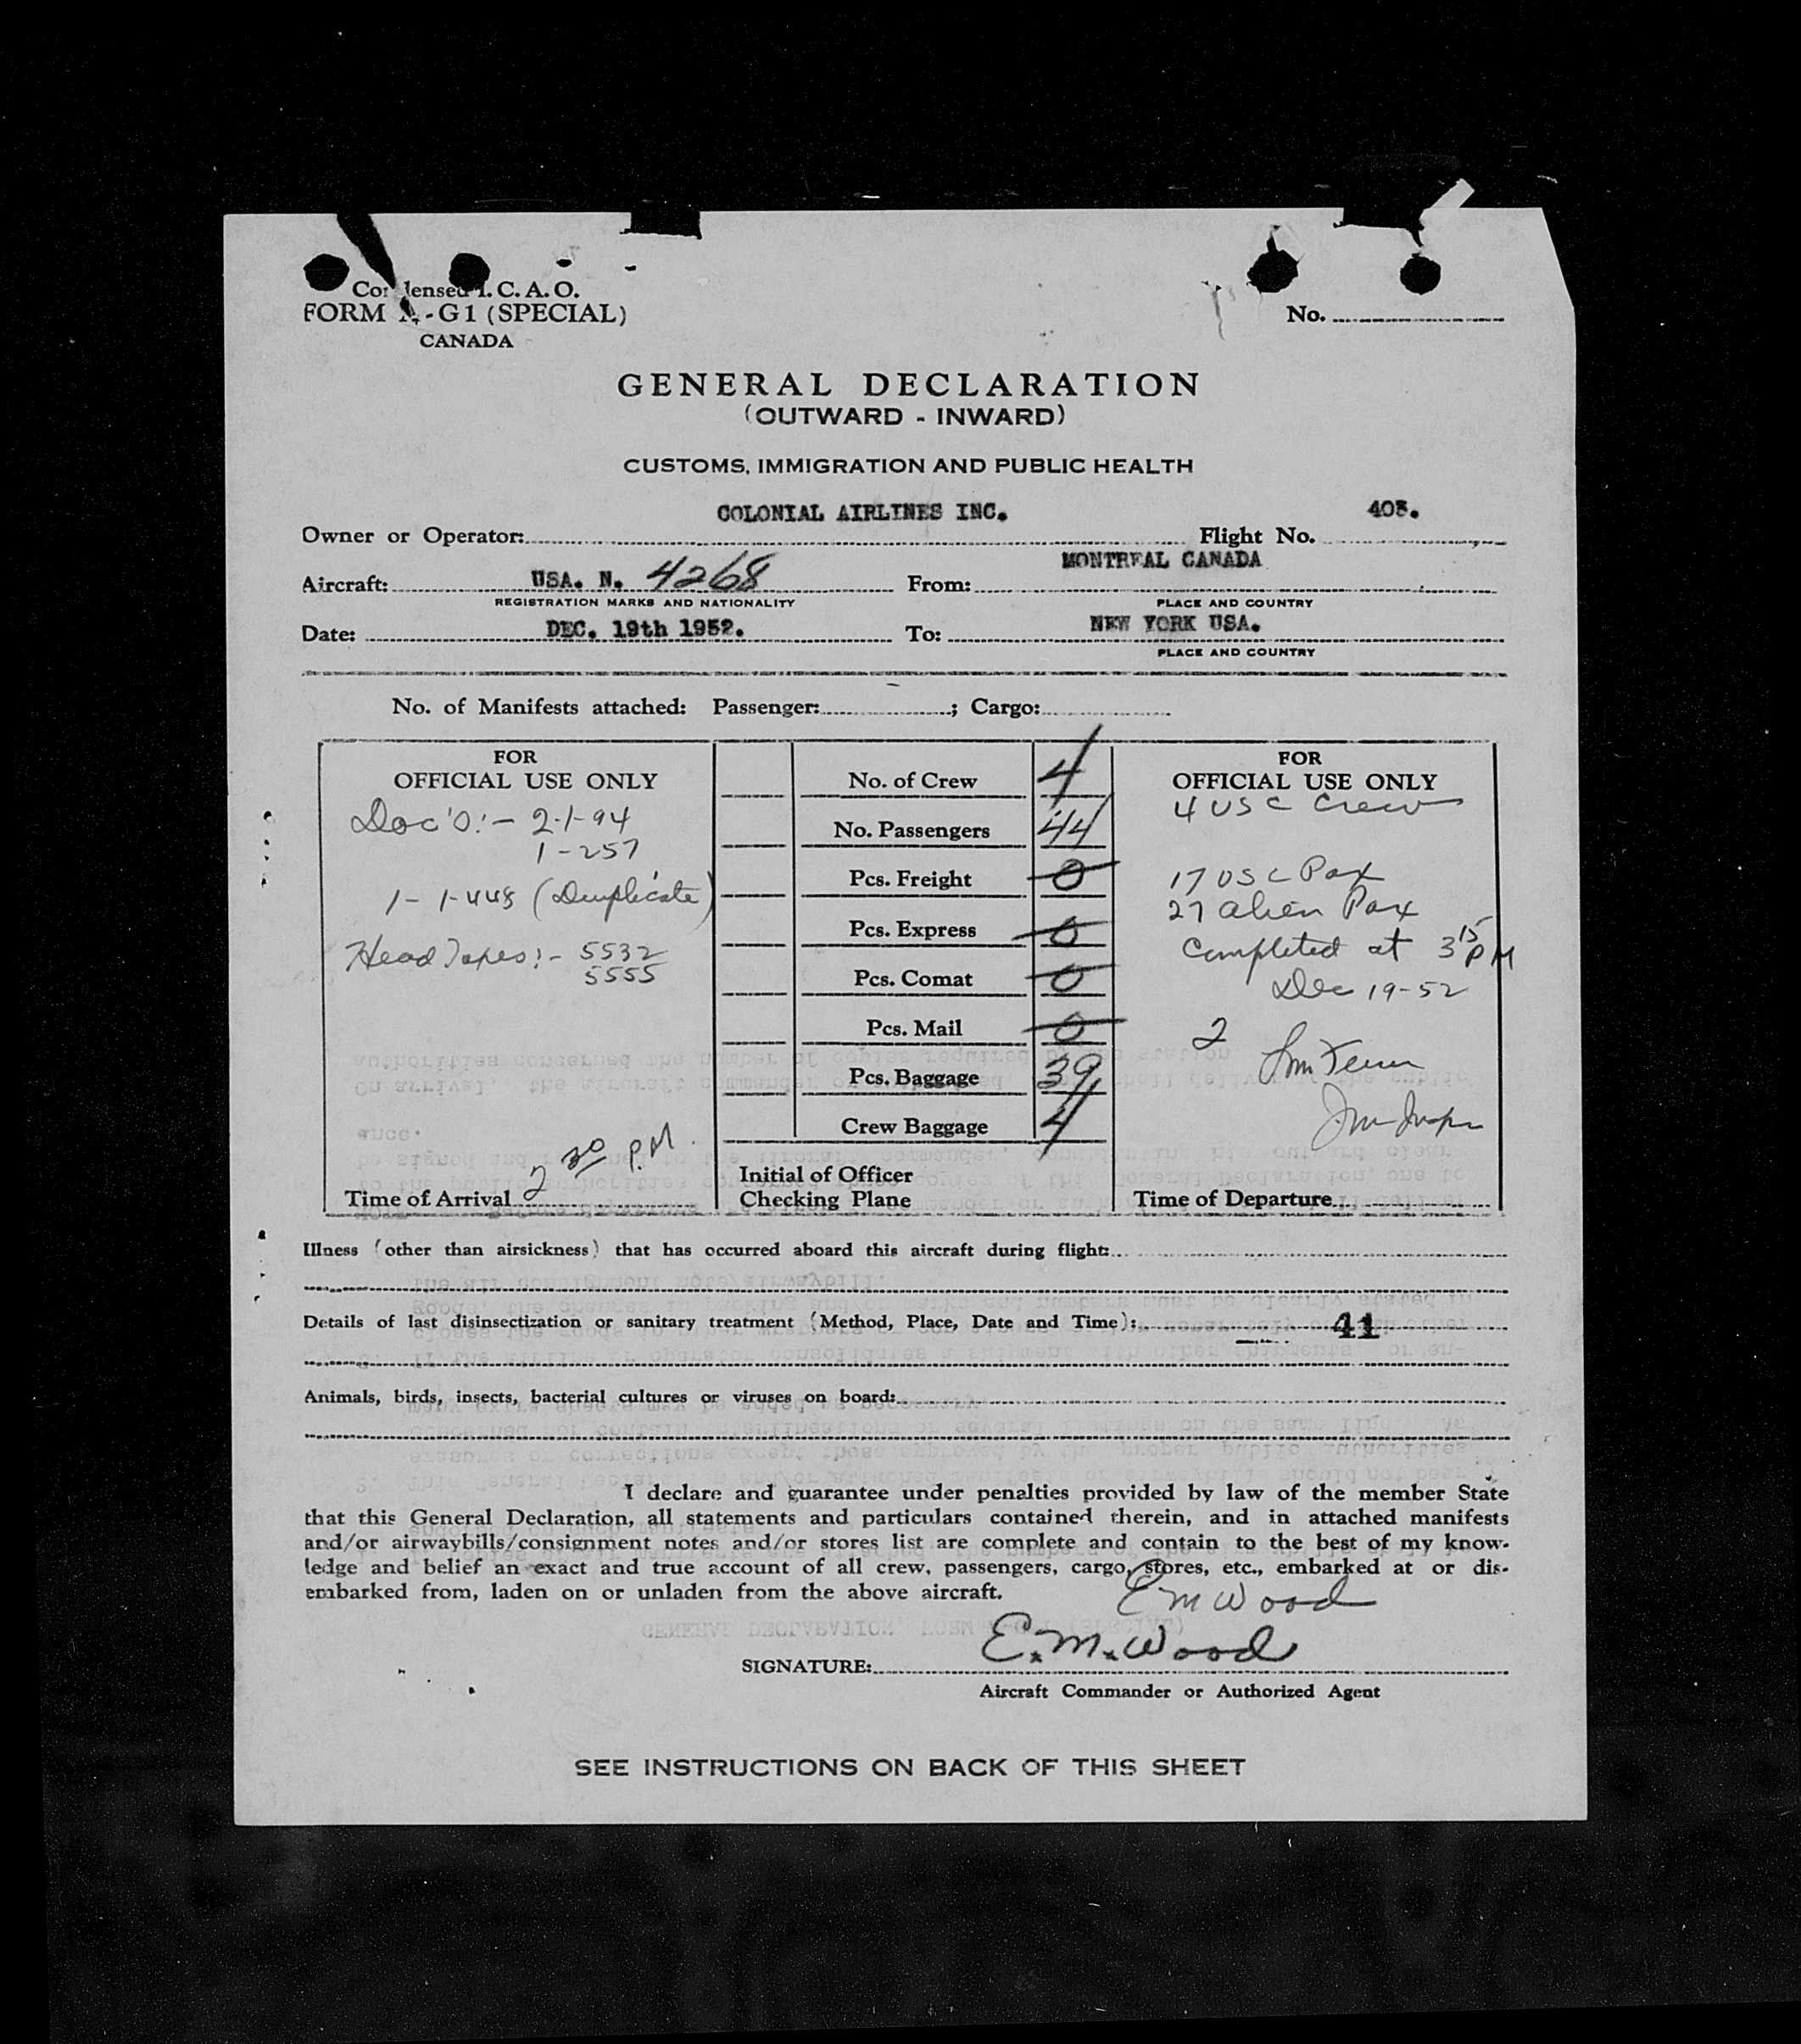 Condensed I. C. A. O.
FORM A-G1 (SPECIAL)
CANADA
No.
GENERAL DECLARATION
(OUTWARD - INWARD)
CUSTOMS, IMMIGRATION AND PUBLIC HEALTH
Owner or Operator: COLONIAL AIRLINES INC. Flight No. 403.
Aircraft: USA. N. 4268 From: MONTREAL CANADA
REGISTRATION MARKS AND NATIONALITY PLACE AND COUNTRY
Date: DEC. 19th 1952. To: NEW YORK USA.
PLACE AND COUNTRY
No. of Manifests attached: Passenger: ; Cargo:
FOR
OFFICIAL USE ONLY
Doc'o:- 2-1-94
1-257
1-1-448 (Duplicate)
Head Taxes:- 5532
5555
Time of Arrival 2 30 P.M.
No. of Crew 4
No. Passengers 44
Pcs. Freight 0
Pcs. Express 0
Pcs. Comat 0
Pcs. Mail 0
Pcs. Baggage 39
Crew Baggage 4
Initial of Officer
Checking Plane
FOR
OFFICIAL USE ONLY
4 USC Crew
17 USC Pax
27 alien Pax
Completed at 3 15 PM
Dec 19-52
2
Time of Departure
Illness (other than airsickness) that has occurred aboard this aircraft during flight:
Details of last disinsectization or sanitary treatment (Method, Place, Date and Time): 41
Animals, birds, insects, bacterial cultures or viruses on board:
I declare and guarantee under penalties provided by law of the member State
that this General Declaration, all statements and particulars contained therein, and in attached manifests
and/or airwaybills/consignment notes and/or stores list are complete and contain to the best of my know-
ledge and belief an exact and true account of all crew, passengers, cargo, stores, etc., embarked at or dis-
embarked from, laden on or unladen from the above aircraft.
E M Wood
SIGNATURE: E. M. Wood
Aircraft Commander or Authorized Agent
SEE INSTRUCTIONS ON BACK OF THIS SHEET